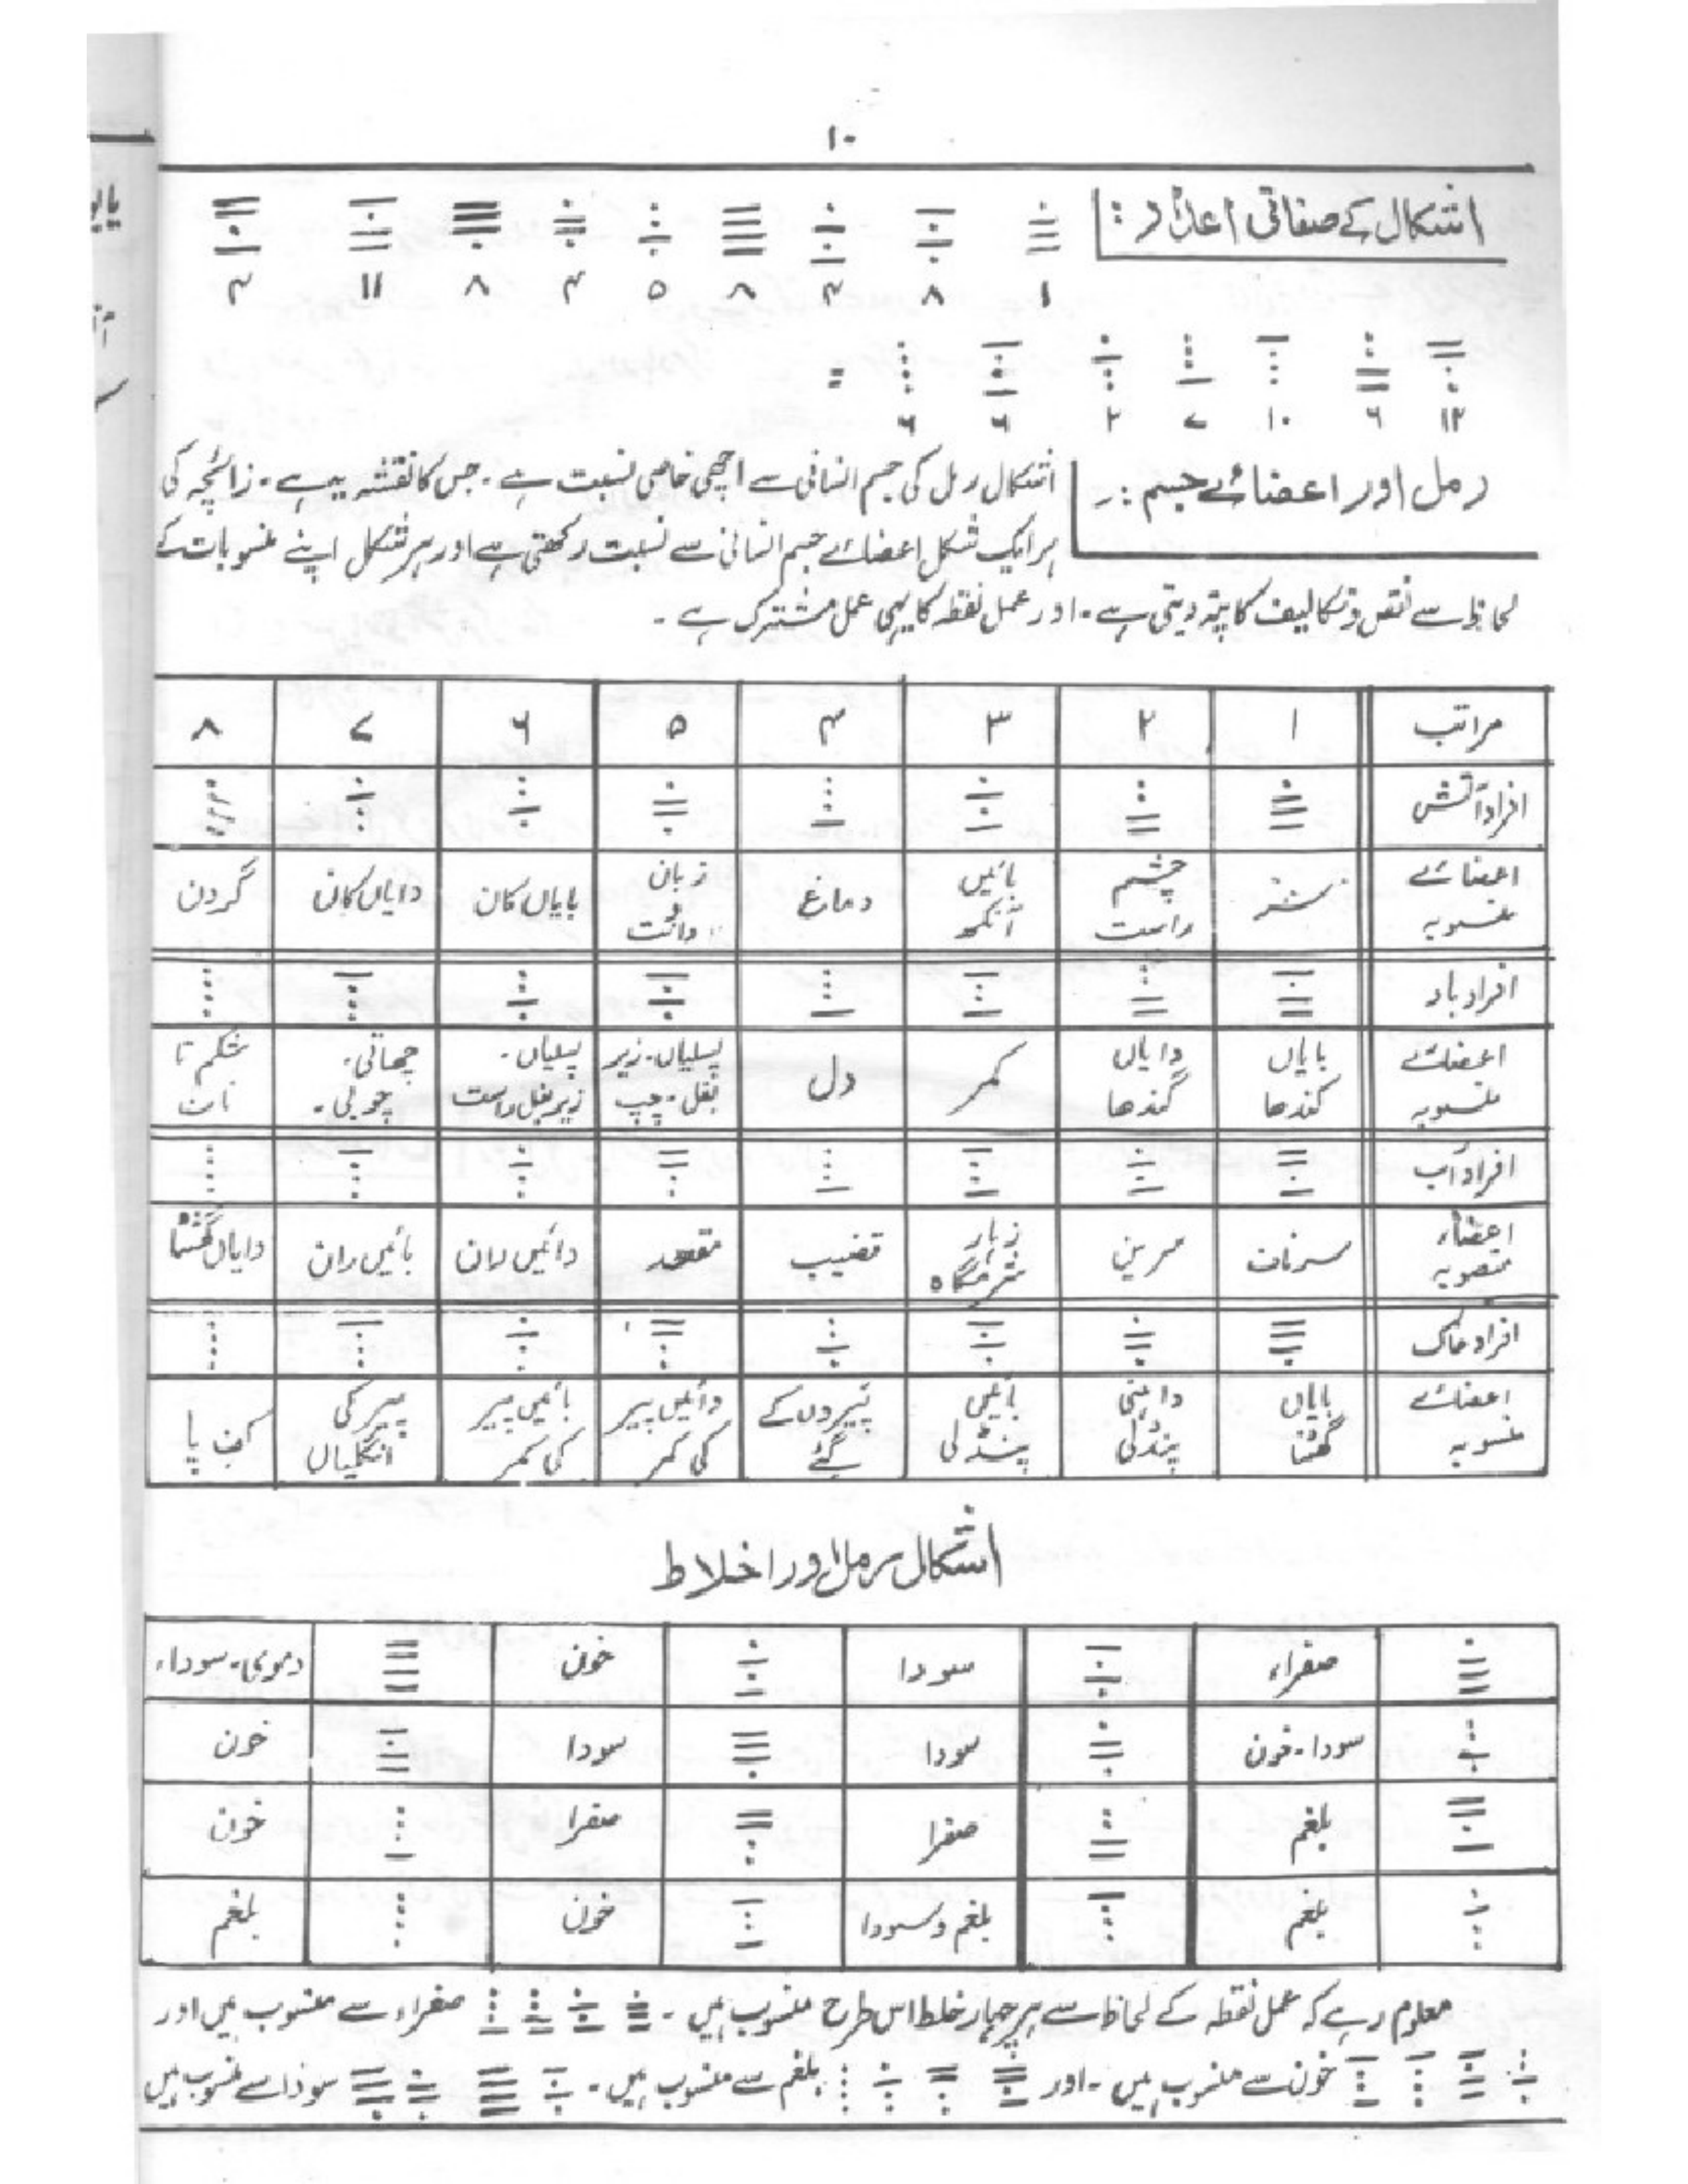 ۱۰
اشکال کے صفاتی اعداد:
۱ ۸ ۴ ۸ ۵ ۴ ۸ ۱۱ ۴
۱۲ ۶ ۱۰ ۷ ۲ ۶ ۶
رمل اور اعضائے جسم :۔ اشکال رمل کی جسم انسانی سے اچھی خاصی نسبت ہے۔ جس کا نقشہ یہ ہے۔ زائچہ کی
ہر ایک شکل اعضائے جسم انسانی سے نسبت رکھتی ہے اور ہر شکل اپنے منسوبات کے
لحاظ سے نقص و تکالیف کا پتہ دیتی ہے۔ اور عمل نقطہ کا یہی عمل مشترک ہے۔
مراتب ۱ ۲ ۳ ۴ ۵ ۶ ۷ ۸
افراد آتش
اعضائے منسوبہ چشم راست بائیں آنکھ دماغ زبان و دانت بایاں کان دایاں کان گردن
افراد باد
اعضائے منسوبہ بایاں کندھا دایاں کندھا کمر دل پسلیاں۔ زیر بغل۔ چپ پسلیاں۔ زیر بغل راست چھاتی۔ شکم تا ناف
افراد آب
اعضاء منصوبہ سرناف سرین زہار شرمگاہ قضیب مقعد دائیں ران بائیں ران دایاں گھٹنا
افراد خاک
اعضائے منسوبہ بایاں گھٹنا داہنی پنڈلی بائیں پنڈلی پیروں کے گٹے دائیں پیر کی کمر بائیں پیر کی کمر پیر کی انگلیاں کف پا
اشکال رمل اور اخلاط
صفراء سودا خون دموی۔ سوداء
سودا۔ خون سودا سودا خون
بلغم صفرا صفرا خون
بلغم بلغم و سودا خون بلغم
معلوم رہے کہ عمل نقطہ کے لحاظ سے ہر چہار خلط اس طرح منسوب ہیں۔ صفراء سے منسوب ہیں اور
خون سے منسوب ہیں۔ اور بلغم سے منسوب ہیں۔ سودا سے منسوب ہیں